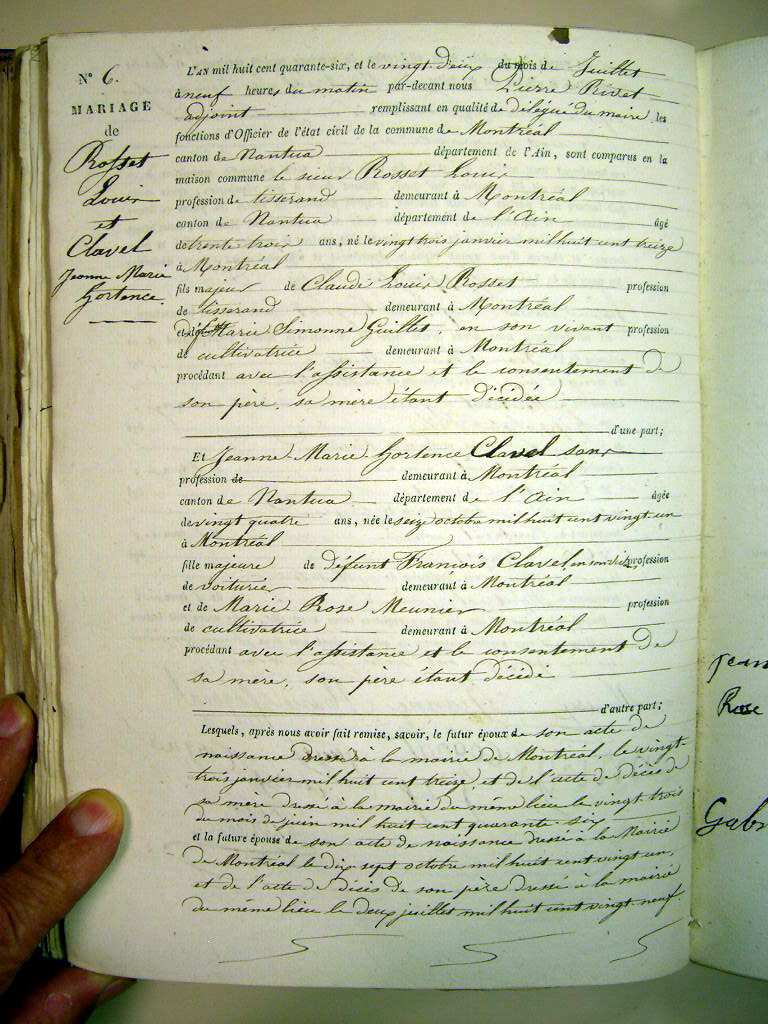 N° 6.
MARIAGE
de
Rosset
Louis
et
Clavel
Jeanne Marie
Hortence.
L'AN mil huit cent quarante-six, et le vingt deux du mois de Juillet
à neuf heures du matin par-devant nous Pierre Rivet
adjoint remplissant en qualité de délégué du maire, les
fonctions d'Officier de l'état civil de la commune de Montréal
canton de Nantua département de l'Ain, sont comparus en la
maison commune le sieur Rosset Louis
profession de tisserand demeurant à Montréal
canton de Nantua département de l'Ain âgé
de trente trois ans, né le vingt trois janvier mil huit cent treize
à Montréal
fils majeur de Claude Louis Rosset profession
de tisserand demeurant à Montréal
et de Marie Simonne Guillet, en son vivant profession
de cultivatrice demeurant à Montréal
procédant avec l'assistance et le consentement de
son père, sa mère étant décédée
d'une part;
Et Jeanne-Marie Hortence Clavel sans
profession de demeurant à Montréal
canton de Nantua département de l'Ain âgée
de vingt quatre ans, née le seize octobre mil huit cent vingt un
à Montréal
fille majeure de défunt François Clavel en son viv. profession
de voiturier demeurant à Montréal
et de Marie Rose Meunier profession
de cultivatrice demeurant à Montréal
procédant avec l'assistance et le consentement de
sa mère, son père étant décédé
d'autre part;
Lesquels, après nous avoir fait remise, savoir, le futur époux de son acte de
naissance dressé à la mairie de Montréal, le vingt-
trois janvier mil huit cent treize, et de l'acte de décès de
sa mère dressé à la mairie du même lieu le vingt trois
du mois de juin mil huit cent quarante six
et la future épouse de son acte de naissance dressé à la Mairie
de Montréal le dix sept octobre mil huit cent vingt un,
et de l'acte de décès de son père dressé à la mairie
du même lieu le deux juillet mil huit cent vingt-neuf.
Rose